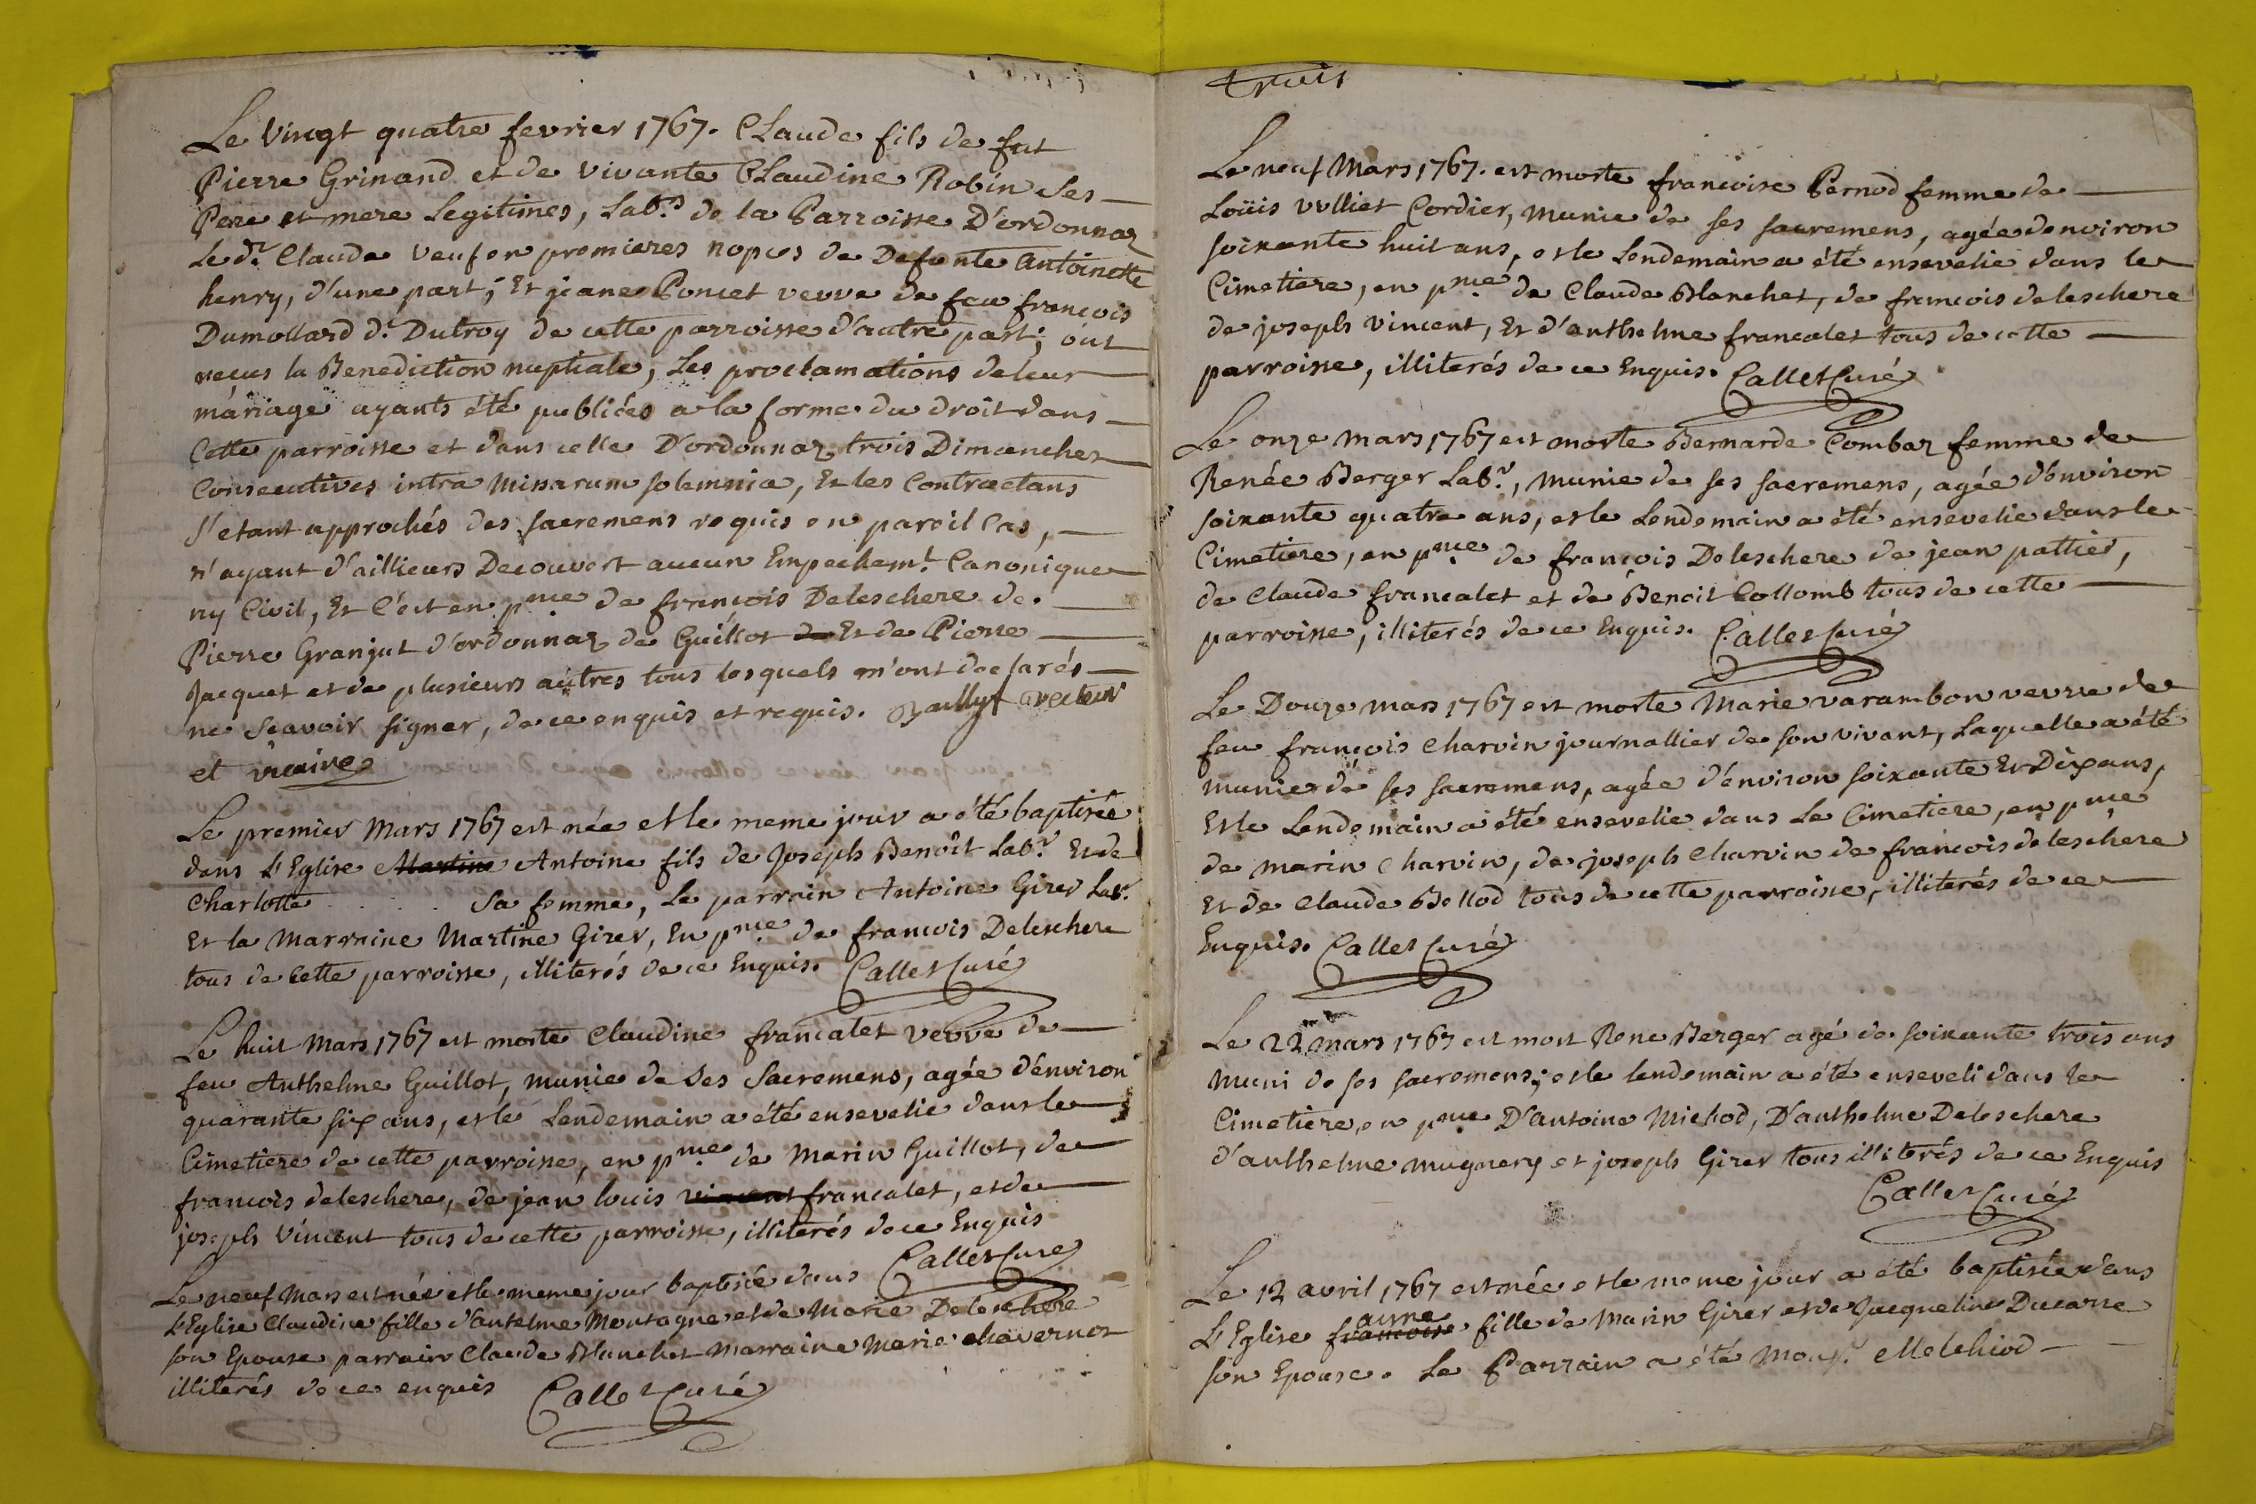 Le Vingt quatre fevrier 1767. Claude fils de fut
Pierre Grinand et de vivante Claudine Robin Ses
Pere et mere Legitimes, Lab.rs de la Parroisse D'ordonnaz
Le d.t Claude veuf en premieres nopces de Defunte Antoinette
henry, d'une part; Et jeane Poncet veuve de feu francois
Dumollard d.t Dutroy de cette parroisse d'autre part; ont
recus la Benediction nuptiale, Les proclamations de leur
máriage ayants été publiées a la forme du droit dans
Cette parroisse et dans celle D'ordonnaz trois Dimanches
Consecutives intra Missarum solemnia, Et les Contractans
S'etant approchés des sacremens requis en pareil Cas,
n'ayant d'aillieurs Decouvert aucun Empechem.t Canonique
ny Civil, Et C'est en p.nce de francois Deleschere de
Pierre Granjut d'ordonnaz de Guillot de Et de Pierre
Jacquet et de plusieurs autres tous lesquels m'ont declarés
ne Scavoir signer, de ce enquis et requis.
et vicaire
Le premier Mars 1767 est née et le meme jour a été baptisée
dans L'Eglise Martine Antoine fils de Joseph Benoît Lab.r Et de
Charlotte . . . . . Sa femme, Le parrain Antoine Girer Lab.r
Et la Marraine Martine Girer, En p.nce de francois Deleschere
tous de Cette parroisse, illiterés de ce Enquis. Callet Curé
Le huit Mars 1767 est morte Claudine francalet veuve de
feu Anthelme Guillot, munie de Ses Sacremens, agée d'énviron
quarante six ans, et le Lendemain a été ensevelie dans le
Cimetiere de cette parroisse, en p.nce de Marin Guillot, de
francois deleschere, de jean louis vincent francalet, et de
joseph Vincent tous de cette parroisse, illiterés de ce Enquis
Callet Curé
Le neuf Mars est née et le meme jour baptisée dans
L'Eglise Claudine fille d'Antelme Montagne et de Marie Deleschere
son Epouse parrain Claude Blanchet marraine Marie chavernot
illiterés de ce enquis Callet Curé
trois
Le neuf Mars 1767. est morte francoise Pernod femme de
Loüis vulliet Cordier, Munie de ses sacremens, agée denviron
soixante huit ans, et le Lendemain a été ensevelie dans le
Cimetiere, en p.nce de Claude Blanchet, de francois deleschere
de joseph Vincent, Et d'anthelme francalet tous de cette
parroisse, illiterés de ce Enquis. Callet Curé
Le onze Mars 1767 est morte Bernarde Combaz femme de
Renée Berger Lab.r, Munie de ses sacremens, agée d'énviron
soixante quatre ans, et le Lendemain a été ensevelie dans le
Cimetiere, en p.nce de françois Deleschere de jean pattier,
de Claude francalet et de Benoit Collomb tous de cette
parroisse, illiterés de ce Enquis. Callet Curé
Le Douze mars 1767 est morte Marie varambon veuve de
feu françois Charvin journallier de son vivant, Laquelle a été
munie de ses sacremens, agée d'énviron soixante Et Dix ans,
Et le Lendemain a été ensevelie dans Le Cimetiere, en p.nce
de marin Charvin, de joseph Charvin de francois deleschere
Et de Claude Bollod tous de cette parroisse, illiterés de ce
Enquis. Callet Curé
Le 22 mars 1767 est mort Rene Berger agé de soixante trois ans
Muni de ses sacremens; et le lendemain a été enseveli dans le
Cimetiere, en p.nce D'antoine Michod, D'anthelme Deleschere
d'anthelme mugnery et joseph Girer tous illiterés de ce Enquis
Callet Curé
Le 12 avril 1767 est née et le meme jour a été baptisée dans
L'Eglise francoise aunne fille de Marin Girer et de Jacqueline Ducarre
son Epouse. Le Parrain a été Mons.r Melchiod